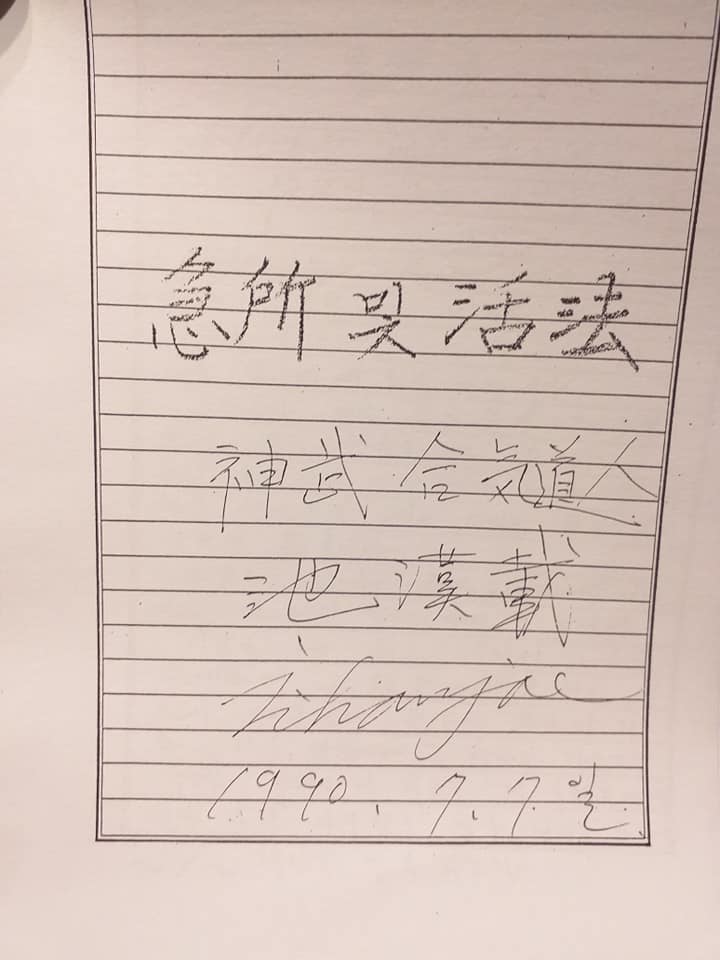 急所 및 活法
神武 合気道人
池漢載
Jihanjae
1990. 7. 7일